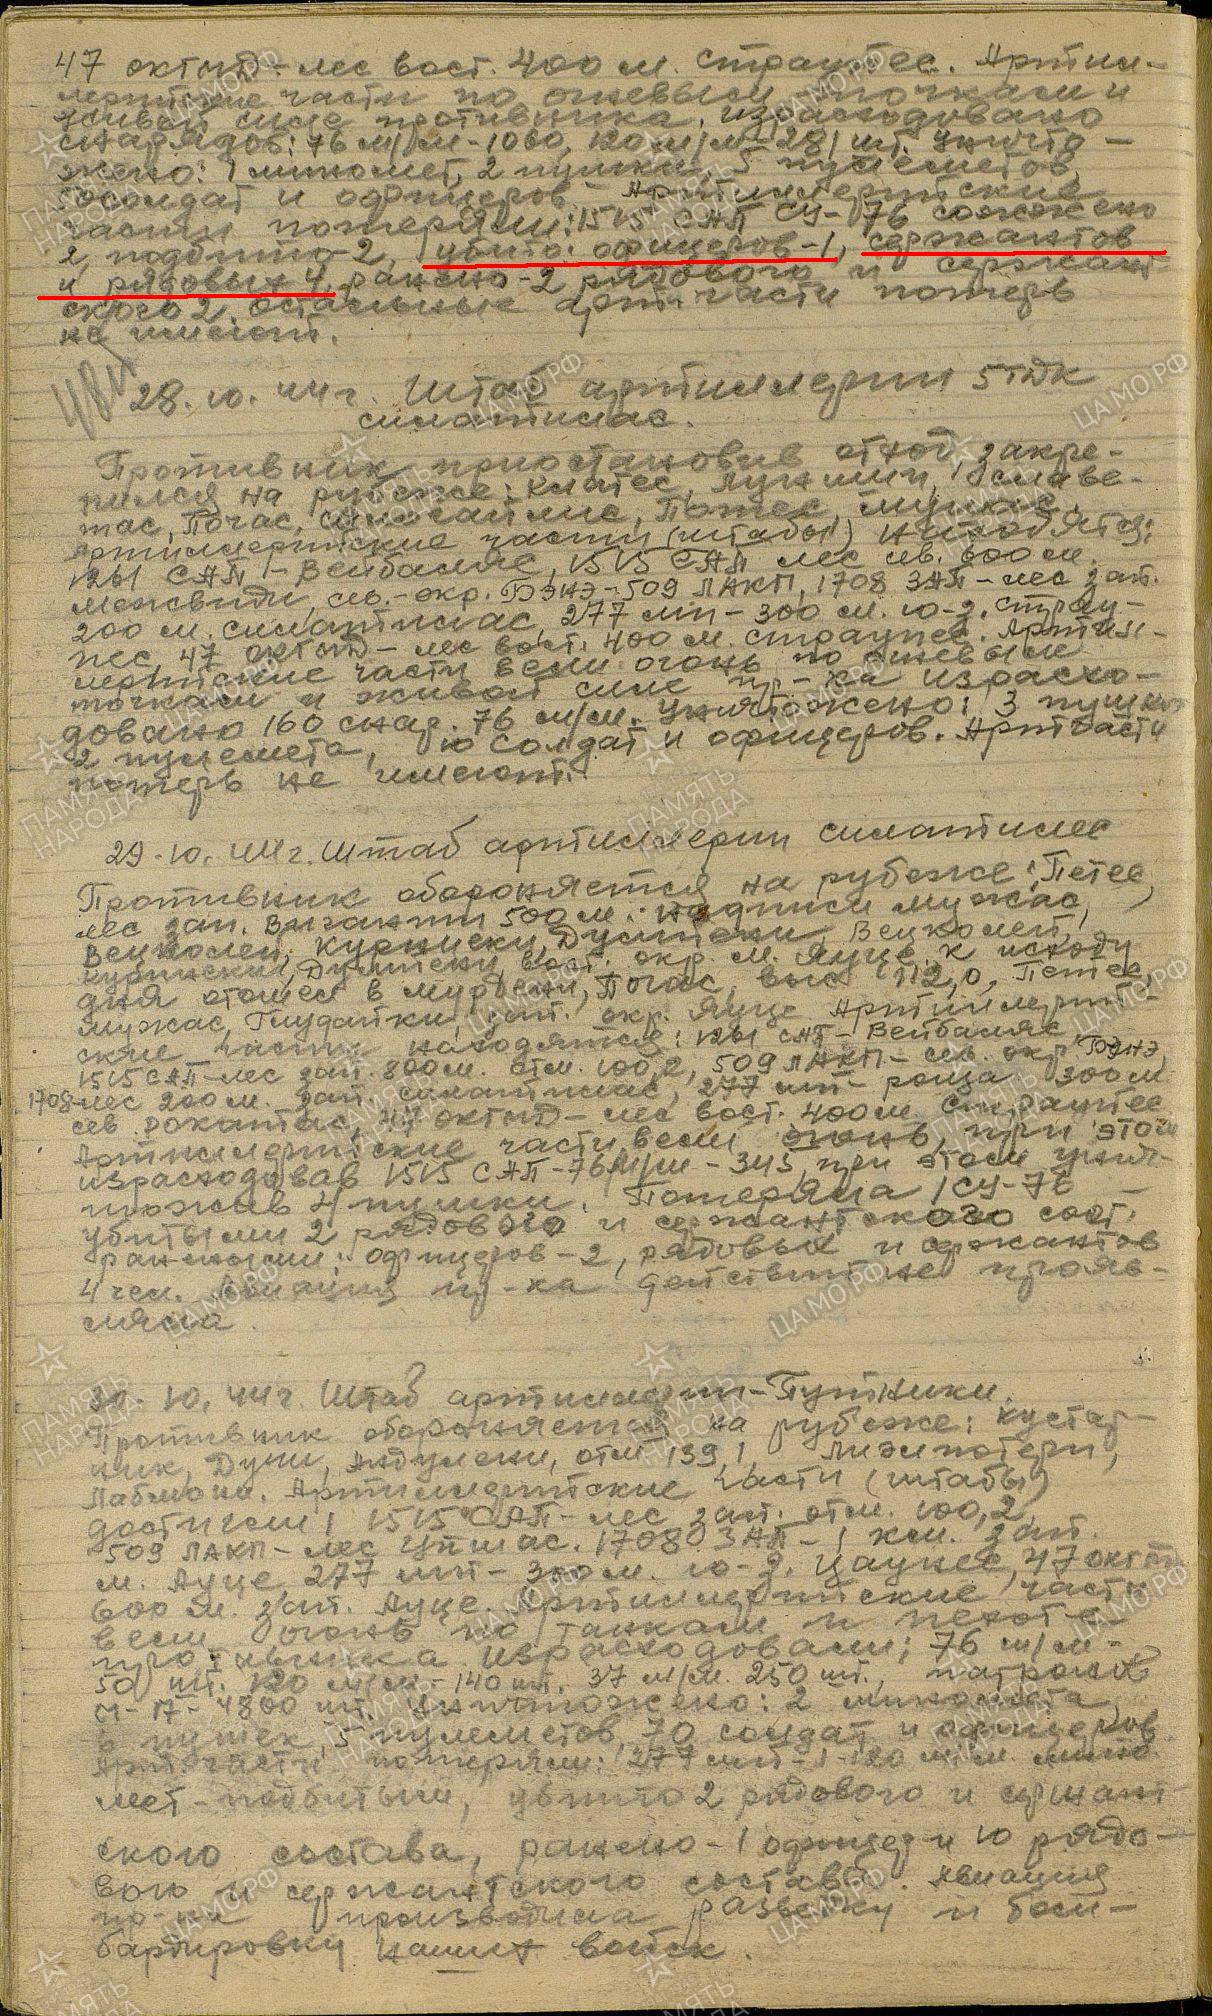 47 октмд - лес вост. 400 м. страупес. Артил-
лерийские части по огневым точкам и
живой силе противника, израсходовано
снарядов: 76 м/м - 1060, 120 м/м - 281 шт. Уничто-
жено: 1 миномет, 2 пушки, 5 пулеметов,
солдат и офицеров. Артиллерийские
части потеряли: 1515 САП СУ-76 сожжено
2, подбито - 2, убито: офицеров - 1, сержантов
и рядовых 4, ранено - 2 рядового и сержант-
ского 2. Остальные артчасти потерь
не имеют.
28.10.44 г. Штаб артиллерии 5 тдк
силантиас.
Противник приостановив отход закре-
пился на рубеже:
тас, Почас,
артиллерийские части (штабы) находятся:
1261 САП - Вейбаляс, 1515 САП лес сев. 600 м.
сев. - окр. БЭНЭ - 509 ЛАКП, 1708 ЗАП - лес зап.
200 м. силантиас, 277 мп - 300 м. ю-з. страу-
пес, 47 октмд - лес вост. 400 м. страупес. Артил-
лерийские части вели огонь по огневым
точкам и живой силе пр-ка израсхо-
довано 160 снар. 76 м/м. Уничтожено: 3 пушки
2 пулемета, 10 солдат и офицеров. Артчасти
потерь не имеют.
29.10.44 г. Штаб артиллерии силантиес
Противник обороняется на рубеже: Петес,
лес зап. 500 м. надписи мужас,
Вецколеи, курниеки, Дупитеки, Вецколеи,
Дупитеки, вост. окр. м. Ауце. К исходу
дня отошел в Почас, выс 112,0, Петес,
мужас, зап. окр. Ауце. Артиллерий-
ские части находятся: 1261 САП - Вейбаляс
1515 САП - лес зап. 800 м. отм. 100,2, 509 ЛАКП - сев. окр. БЭНЭ,
1708 - лес 200 м. зап. силантиас, 277 мп - роща 300 м
сев. рокантас, 47 октмд - лес вост. 400 м страупес
Артиллерийские части вели огонь, при этом
израсходовав 1515 САП - 76 м/м - 345, при этом унич-
тожив 4 пушки. Потеряла 1 СУ-76
убитыми 2 рядового и сержантского сост.
ранеными: офицеров - 2, рядовых и сержантов
4 чел. Авиация пр-ка действий не прояв-
ляла.
30.10.44 г. Штаб артиллерии - Путники.
Противник обороняется на рубеже: кустар-
ник, Дуни, Андулеки, отм 139,1,
Артиллерийские части (штабы)
достигли: 1515 САП - лес зап. отм. 100,2,
509 ЛАКП - лес Упмас. 1708 ЗАП - 1 км. зап.
м. Ауце, 277 мп - 300 м. ю-з. Цаунес, 47 октмд
600 м. зап. Ауце. Артиллерийские части
вели огонь по танкам и пехоте
противника израсходовали: 76 м/м -
50 шт. 120 м/м - 140 шт. 37 м/м. 250 шт., патронов
4800 шт. Уничтожено: 2 миномета
пушек, 5 пулеметов, 70 солдат и офицеров
Артчасти потеряли: 277 мп - 1 - 120 м/м. мино-
мет - подбитым, убито 2 рядового и сержант-
ского состава, ранено - 1 офицер и 10 рядо-
вого и сержантского состава. Авиация
пр-ка производила разведку и бом-
бардировку наших войск.